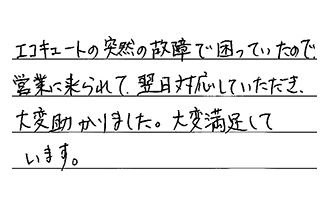 エコキュートの突然の故障で困っていたので、
営業に来られて、翌日対応していただき、
大変助かりました。大変満足して
います。